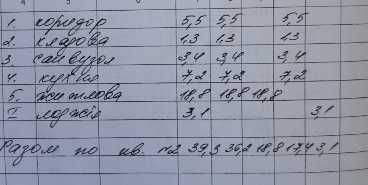 1. коридор 5,5 5,5 5,5
2. кладова 1,3 1,3 1,3
3. санвузол 3,4 3,4 3,4
4. кухня 7,2 7,2 7,2
5. житлова 18,8 18,8 18,8
I лоджія 3,1 3,1
Разом по кв. №2 39,3 36,2 18,8 17,4 3,1